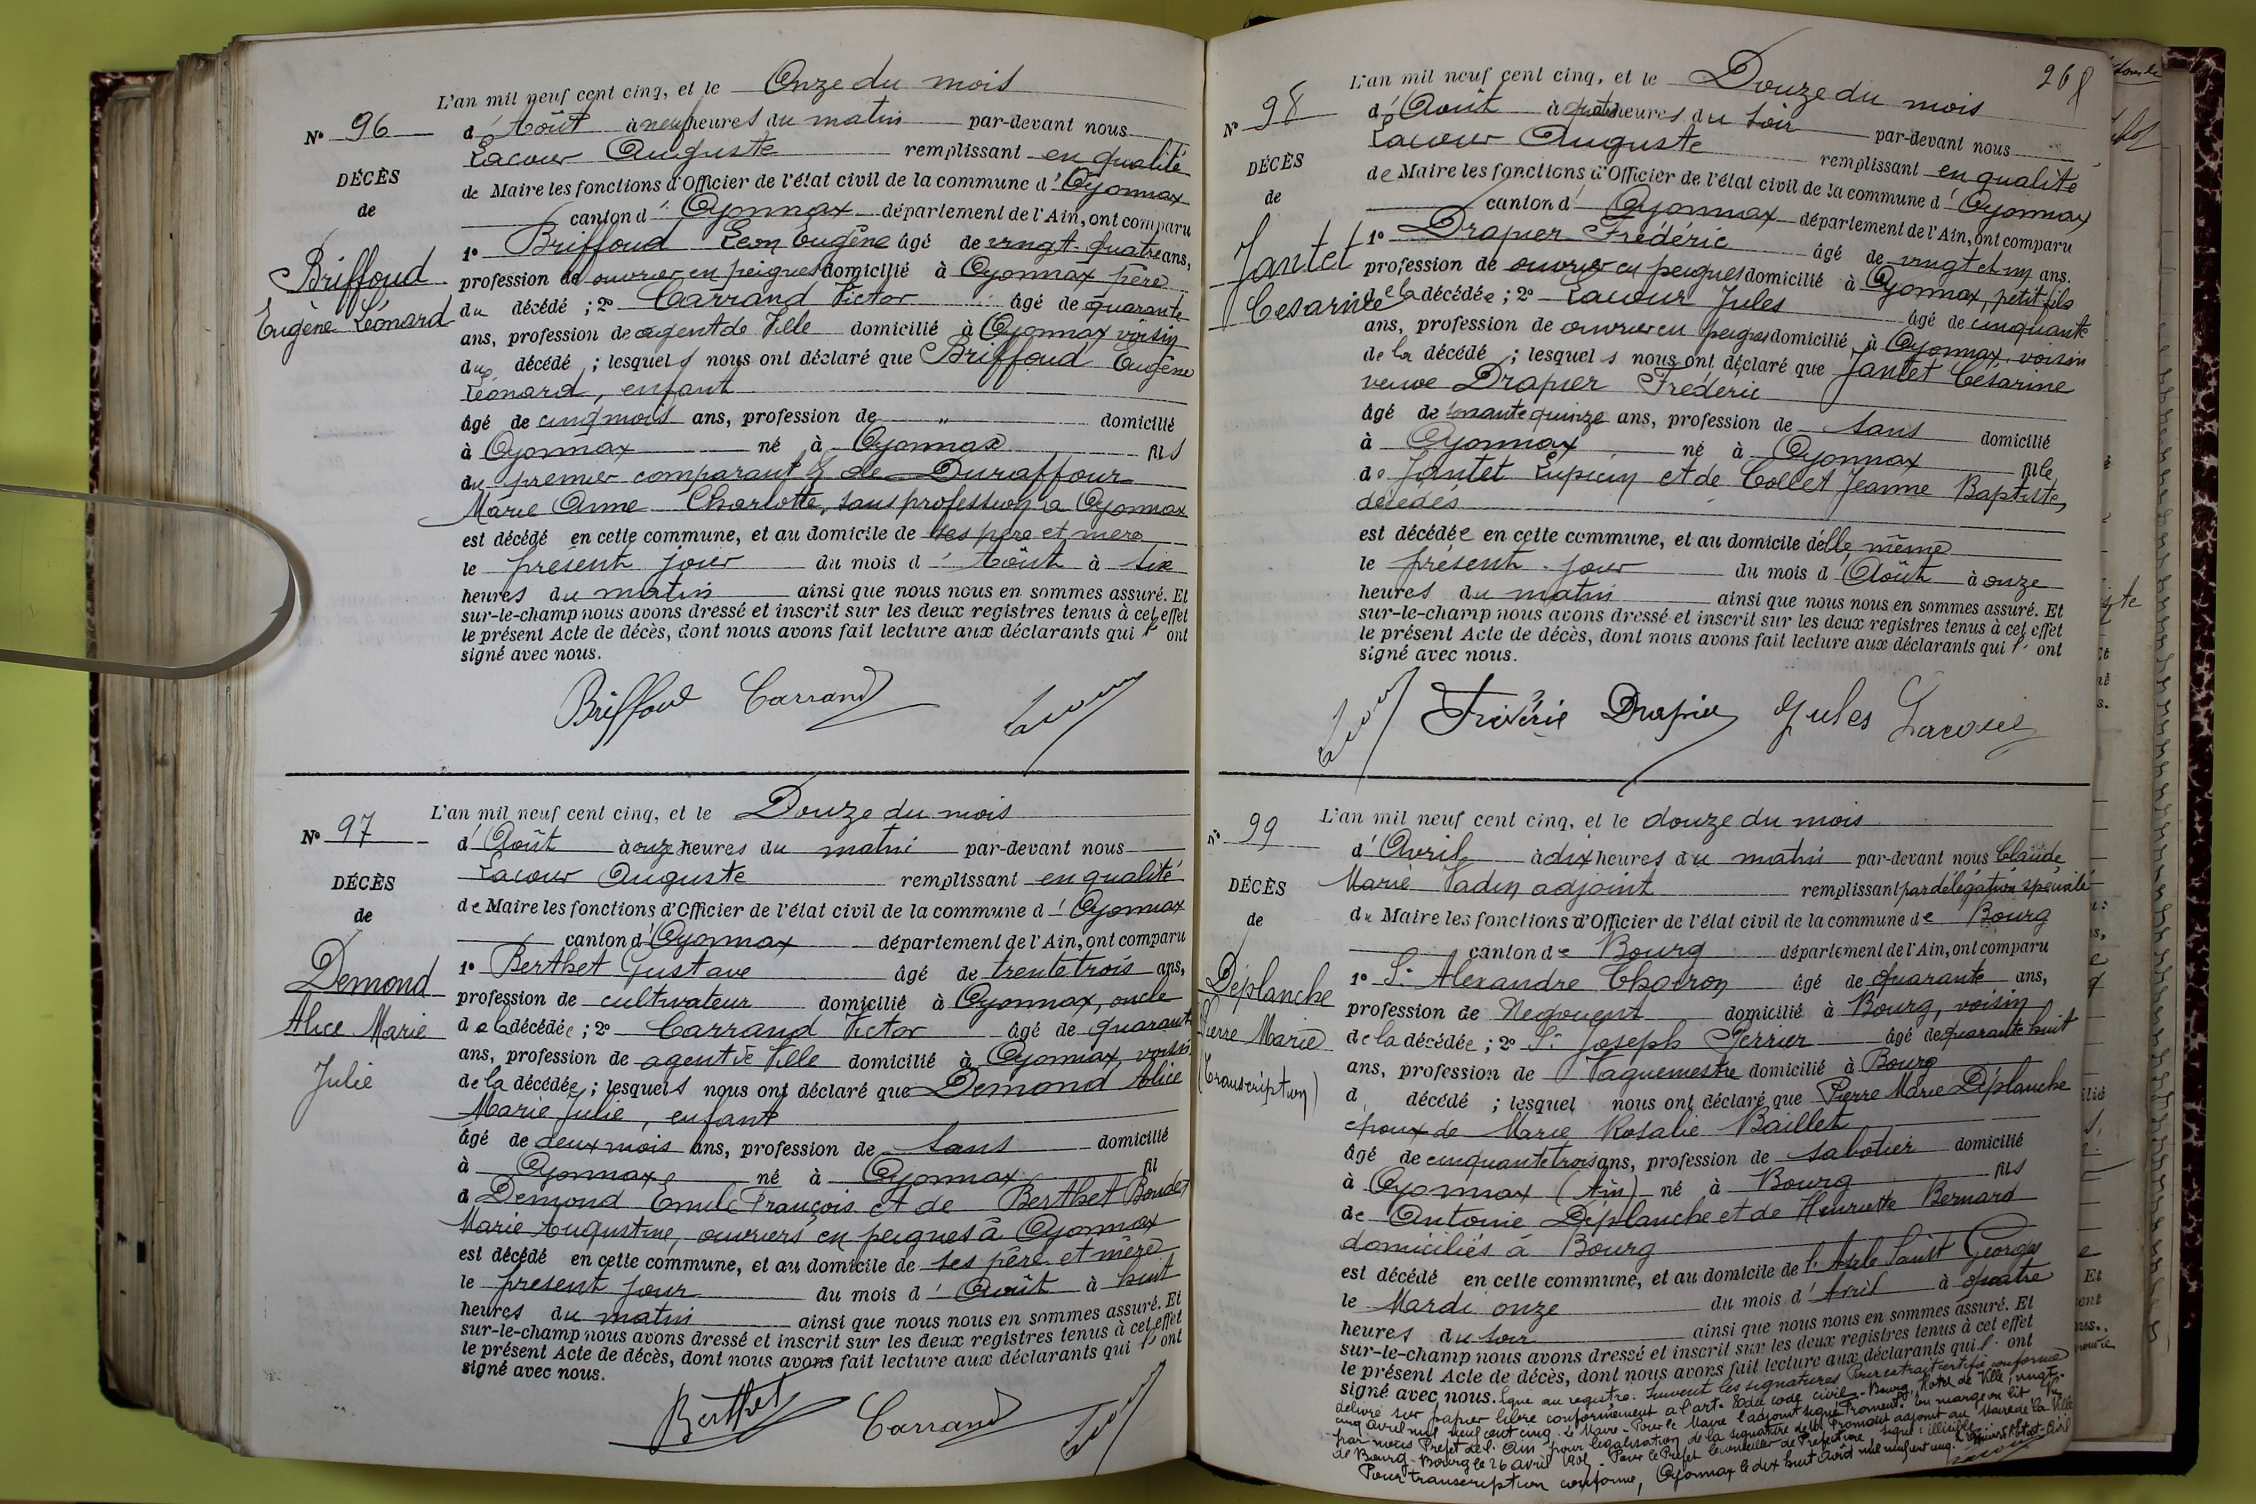 L'an mil neuf cent cinq, et le Onze du mois
N° 96 d'Août à neuf heures du matin par-devant nous
Lacour Auguste remplissant en qualité
DÉCÈS de Maire les fonctions d'Officier de l'état civil de la commune d'Oyonnax
de canton d'Oyonnax département de l'Ain, ont comparu
1° Briffoud Léon Eugène âgé de vingt-quatre ans,
Briffoud profession de ouvrier en peignes domicilié à Oyonnax père
Eugène Léonard du décédé ; 2° Carrand Victor âgé de quarante
ans, profession de agent de Ville domicilié à Oyonnax voisin
du décédé ; lesquels nous ont déclaré que Briffoud Eugène
Léonard, enfant
âgé de cinq mois ans, profession de " domicilié
à Oyonnax né à Oyonnax fils
du premier comparant & de Duraffour
Marie Anne Charlotte, sans profession à Oyonnax
est décédé en cette commune, et au domicile de ses père et mère
le présent jour du mois d'Août à six
heures du matin ainsi que nous nous en sommes assuré. Et
sur-le-champ nous avons dressé et inscrit sur les deux registres tenus à cet effet
le présent Acte de décès, dont nous avons fait lecture aux déclarants qui l'ont
signé avec nous.
Briffoud Carrand
L'an mil neuf cent cinq, et le Douze du mois
N° 97 d'Août à onze heures du matin par-devant nous
Lacour Auguste remplissant en qualité
DÉCÈS de Maire les fonctions d'Officier de l'état civil de la commune d'Oyonnax
de canton d'Oyonnax département de l'Ain, ont comparu
Demond 1° Berthet Gustave âgé de trente trois ans,
profession de cultivateur domicilié à Oyonnax, oncle
Alice Marie de la décédée ; 2° Carrand Victor âgé de quarante
Julie ans, profession de agent de Ville domicilié à Oyonnax, voisin
de la décédée ; lesquels nous ont déclaré que Demond Alice
Marie Julie, enfant
âgé de deux mois ans, profession de sans domicilié
à Oyonnax né à Oyonnax fil
d Demond Emile François et de Berthet Boudet
Marie Augustine, ouvriers en peignes à Oyonnax
est décédé en cette commune, et au domicile de ses père et mère
le présent jour du mois d'Août à huit
heures du matin ainsi que nous nous en sommes assuré. Et
sur-le-champ nous avons dressé et inscrit sur les deux registres tenus à cet effet
le présent Acte de décès, dont nous avons fait lecture aux déclarants qui l'ont
signé avec nous.
Berthet Carrand
268
L'an mil neuf cent cinq, et le Douze du mois
N° 98 d'Août à quatre heures du soir par-devant nous
Lacour Auguste remplissant en qualité
DÉCÈS de Maire les fonctions d'Officier de l'état civil de la commune d'Oyonnax
de canton d'Oyonnax département de l'Ain, ont comparu
Jantet 1° Drapier Frédéric âgé de vingt et un ans.
Césarine profession de ouvrier en peignes domicilié à Oyonnax, petit fils
de la décédée ; 2° Lacour Jules âgé de cinquante
ans, profession de ouvrier en peignes domicilié à Oyonnax, voisin
de la décédé ; lesquels nous ont déclaré que Jantet Césarine
veuve Drapier Frédéric
âgé de soixante quinze ans, profession de sans domicilié
à Oyonnax né à Oyonnax fille
de Jantet Lupicin et de Collet Jeanne Baptiste,
décédés
est décédée en cette commune, et au domicile d'elle même
le présent jour du mois d'Août à onze
heures du matin ainsi que nous nous en sommes assuré. Et
sur-le-champ nous avons dressé et inscrit sur les deux registres tenus à cet effet
le présent Acte de décès, dont nous avons fait lecture aux déclarants qui l'ont
signé avec nous.
Frédéric Drapier Jules Lacour
L'an mil neuf cent cinq, et le douze du mois
N° 99 d'Avril à dix heures du matin par-devant nous Claude
Marie Vadin adjoint remplissant par délégation spéciale
DÉCÈS du Maire les fonctions d'Officier de l'état civil de la commune de Bourg
de canton de Bourg département de l'Ain, ont comparu
Déplanche 1° Sr Alexandre Chocron âgé de quarante ans,
profession de Négociant domicilié à Bourg, voisin
Pierre Marie de la décédée ; 2° Sr Joseph Perrier âgé de quarante huit
(Transcription) ans, profession de Vaguemestre domicilié à Bourg
d décédé ; lesquel nous ont déclaré que Pierre Marie Déplanche
époux de Marie Rosalie Baillet
âgé de cinquante trois ans, profession de sabotier domicilié
à Oyonnax (Ain) né à Bourg fils
de Antoine Déplanche et de Henriette Bernard
domiciliés à Bourg
est décédé en cette commune, et au domicile de l'Asile Saint Georges
le Mardi onze du mois d'Avril à quatre
heures du soir ainsi que nous nous en sommes assuré. Et
sur-le-champ nous avons dressé et inscrit sur les deux registres tenus à cet effet
le présent Acte de décès, dont nous avons fait lecture aux déclarants qui l'ont
signé avec nous. Signé au registre. Suivent les signatures Pour extrait certifié conforme
délivré sur papier libre conformément à l'art. code civil. Bourg, Hôtel de Ville, vingt-
cinq avril mil neuf cent cinq. Le Maire - Pour le Maire l'adjoint signé Fromont. En marge on lit Vu
par nous Préfet de l'Ain pour légalisation de la signature de Mr Fromont adjoint au Maire de la Ville
de Bourg. Bourg le 26 avril 1905. Pour le Préfet le conseiller de Préfecture, signé : illisible.
Pour transcription conforme, Oyonnax le dix huit Août mil neuf cent cinq.